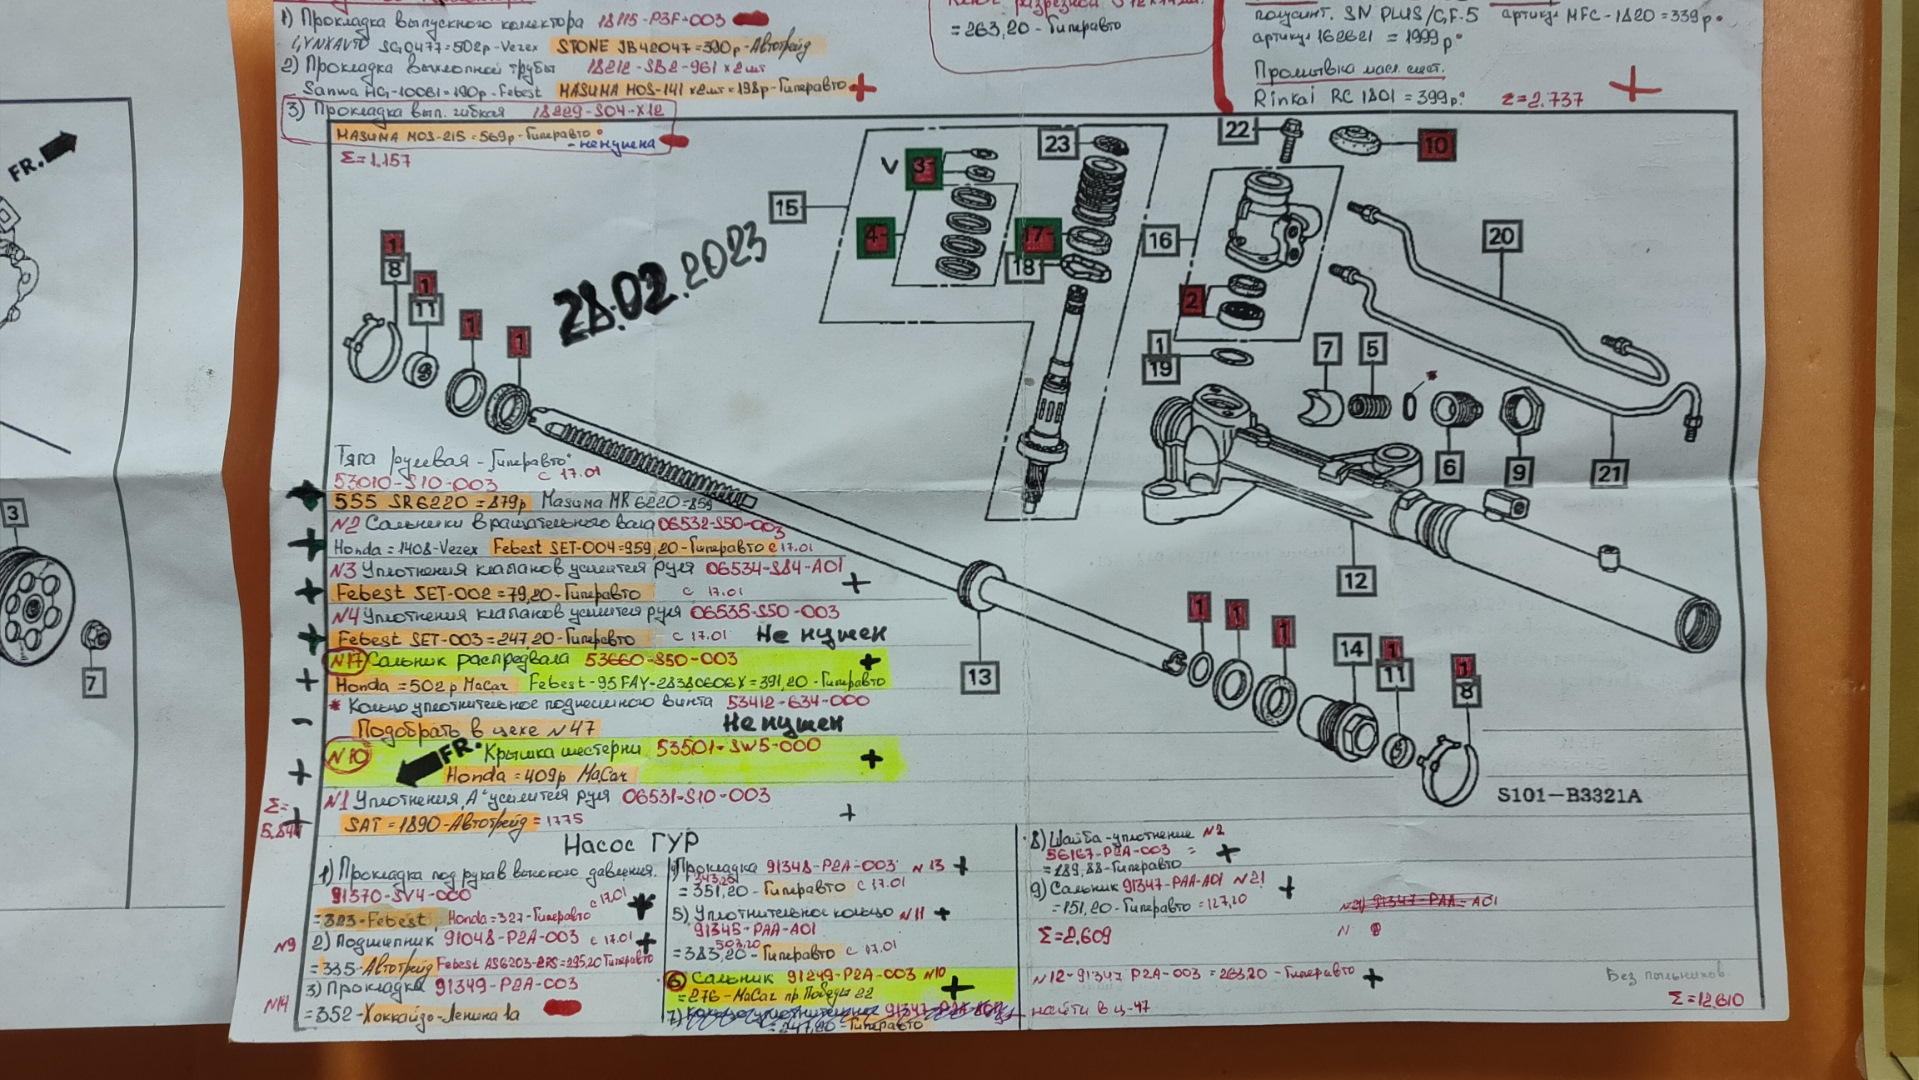 1) Прокладка выпускного колектора 18115-P3F-003
SG0477=502р-Vezex STONE JB42047=390р-Автотрейд
2) Прокладка выхлопной трубы 18212-SB2-961 х2шт
Sanwa HG-10061=190р-Febest MASUMA MOS-141 х2шт=198р-Гиперавто +
3) Прокладка вып. гибкая 18229-S04-X12
MASUMA MOS-215=569р-Гиперавто
-ненужена
Σ=1.157
=263,20-Гиперавто
SN PLUS/GF-5 артикул MFC-1820=339р
артикул 162621=1999р
Промывка масл. сист.
Rinkai RC 1801=399р. Σ=2.737 +
FR.
3
7
28.02.2023
1
8
1
11
1
1
15
V 3
4
23
17
18
22
10
16
2
1
19
20
7
5
*
6
9
21
12
13
1
1
1
14
1
11
1
8
S101-B3321A
Тяга рулевая-Гиперавто
53010-S10-003 с 17.01
555 SR6220=879р Masuma MR6220=859
N2 Сальники вращательного вала 06532-S50-003
Honda=1408-Vezex Febest SET-004=959,20-Гиперавто с 17.01
N3 Уплотнения клапанов усилителя руля 06534-S84-A01
Febest SET-002=79,20-Гиперавто с 17.01 +
N4 Уплотнения клапанов усилителя руля 06535-S50-003
Febest SET-003=247,20-Гиперавто с 17.01 Не нужен
N17 Сальник распредвала 53660-S50-003 +
Honda=502р MaCar Febest-95FAY-28380606X=391,20-Гиперавто
* Кольцо уплотнительное подвесного винта 53412-634-000
Подобрать в цехе N47 Не нужен
N10 FR. Крышка шестерни 53501-SW5-000
Honda=409р MaCar +
N1 Уплотнения "А" усилителя руля 06531-S10-003
SAT=1890-Автотрейд=1775 +
Σ=
5.844
Насос ГУР
1) Прокладка под рукав высокого давления.
91370-SV4-000
=323-Febest, Honda=327-Гиперавто с 17.01
N9 2) Подшипник 91048-P2A-003 с 17.01 +
=335-Автотрейд Febest AS6203-2RS=295,20 Гиперавто
3) Прокладка 91349-P2A-003
N14 =352-Хоккайдо-Ленина 1а
4) Прокладка 91348-P2A-003 N13 +
=351,20-Гиперавто с 17.01
5) Уплотнительное кольцо N11 +
91345-PAA-A01
503,20
=383,20-Гиперавто с 17.01
6) Сальник 91249-P2A-003 N10
=276-MaCar пр. Победы 22 +
7)
Гиперавто
8) Шайба-уплотнение N2
56167-P2A-003 = +
=289,88-Гиперавто
9) Сальник 91347-PAA-A01 N21 +
=151,20-Гиперавто=127,20
Σ=2.609
N21 91347-PAA-A01
N 8
N12-91347 P2A-003=263,20-Гиперавто +
найти в ц-47
Без пыльников
Σ=12.610